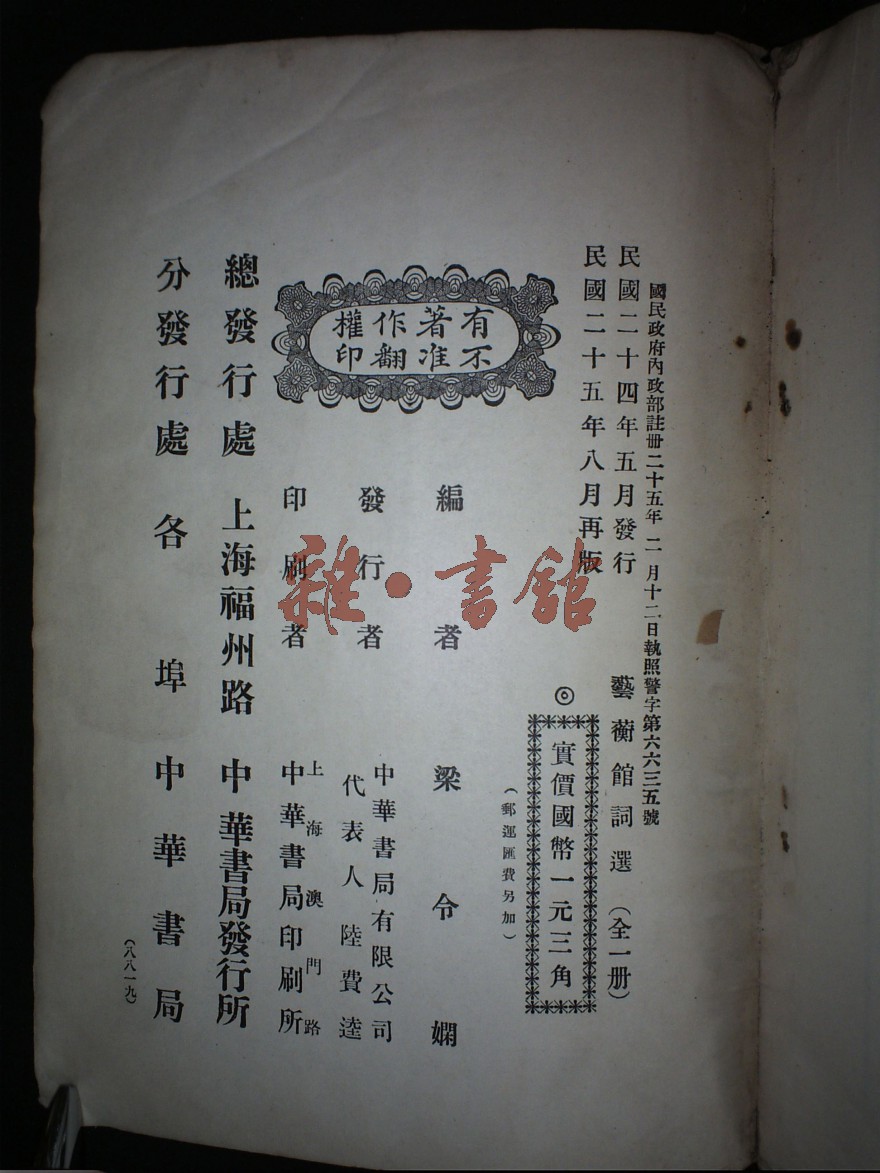 國民政府內政部註冊二十五年二月十二日執照警字第六六三五號
民國二十四年五月發行
民國二十五年八月再版
藝蘅館詞選（全一册）
◎
實價國幣一元三角
（郵運匯費另加）
有著作權
不准翻印
編者 梁令嫻
發行者 中華書局有限公司
代表人 陸費逵
印刷者 上海澳門路
中華書局印刷所
總發行處 上海福州路 中華書局發行所
分發行處 各埠中華書局
（八八一九）
雜·書館